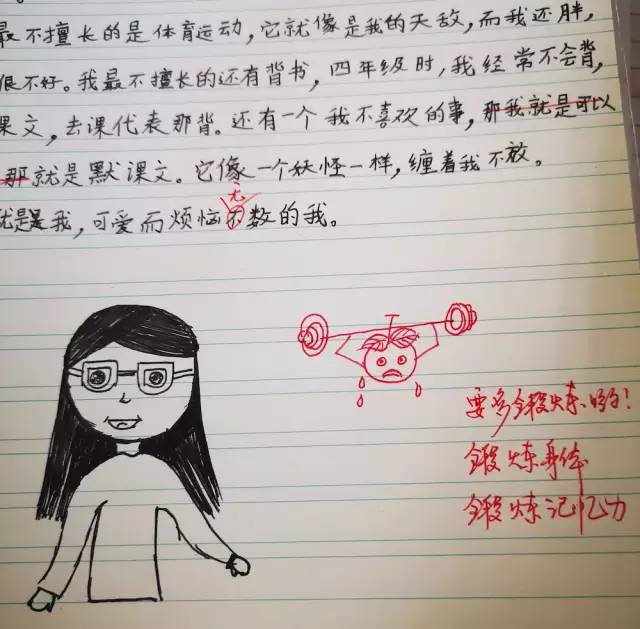 最不擅长的是体育运动，它就像是我的天敌，而我还胖，
很不好。我最不擅长的还有背书，四年级时，我经常不会背，
课文，去课代表那背。还有一个我不喜欢的事，那我就是可以
那就是默课文。它像一个妖怪一样，缠着我不放。
无
就是我，可爱而烦恼不数的我。
要多锻炼哟！
锻炼身体
锻炼记忆力